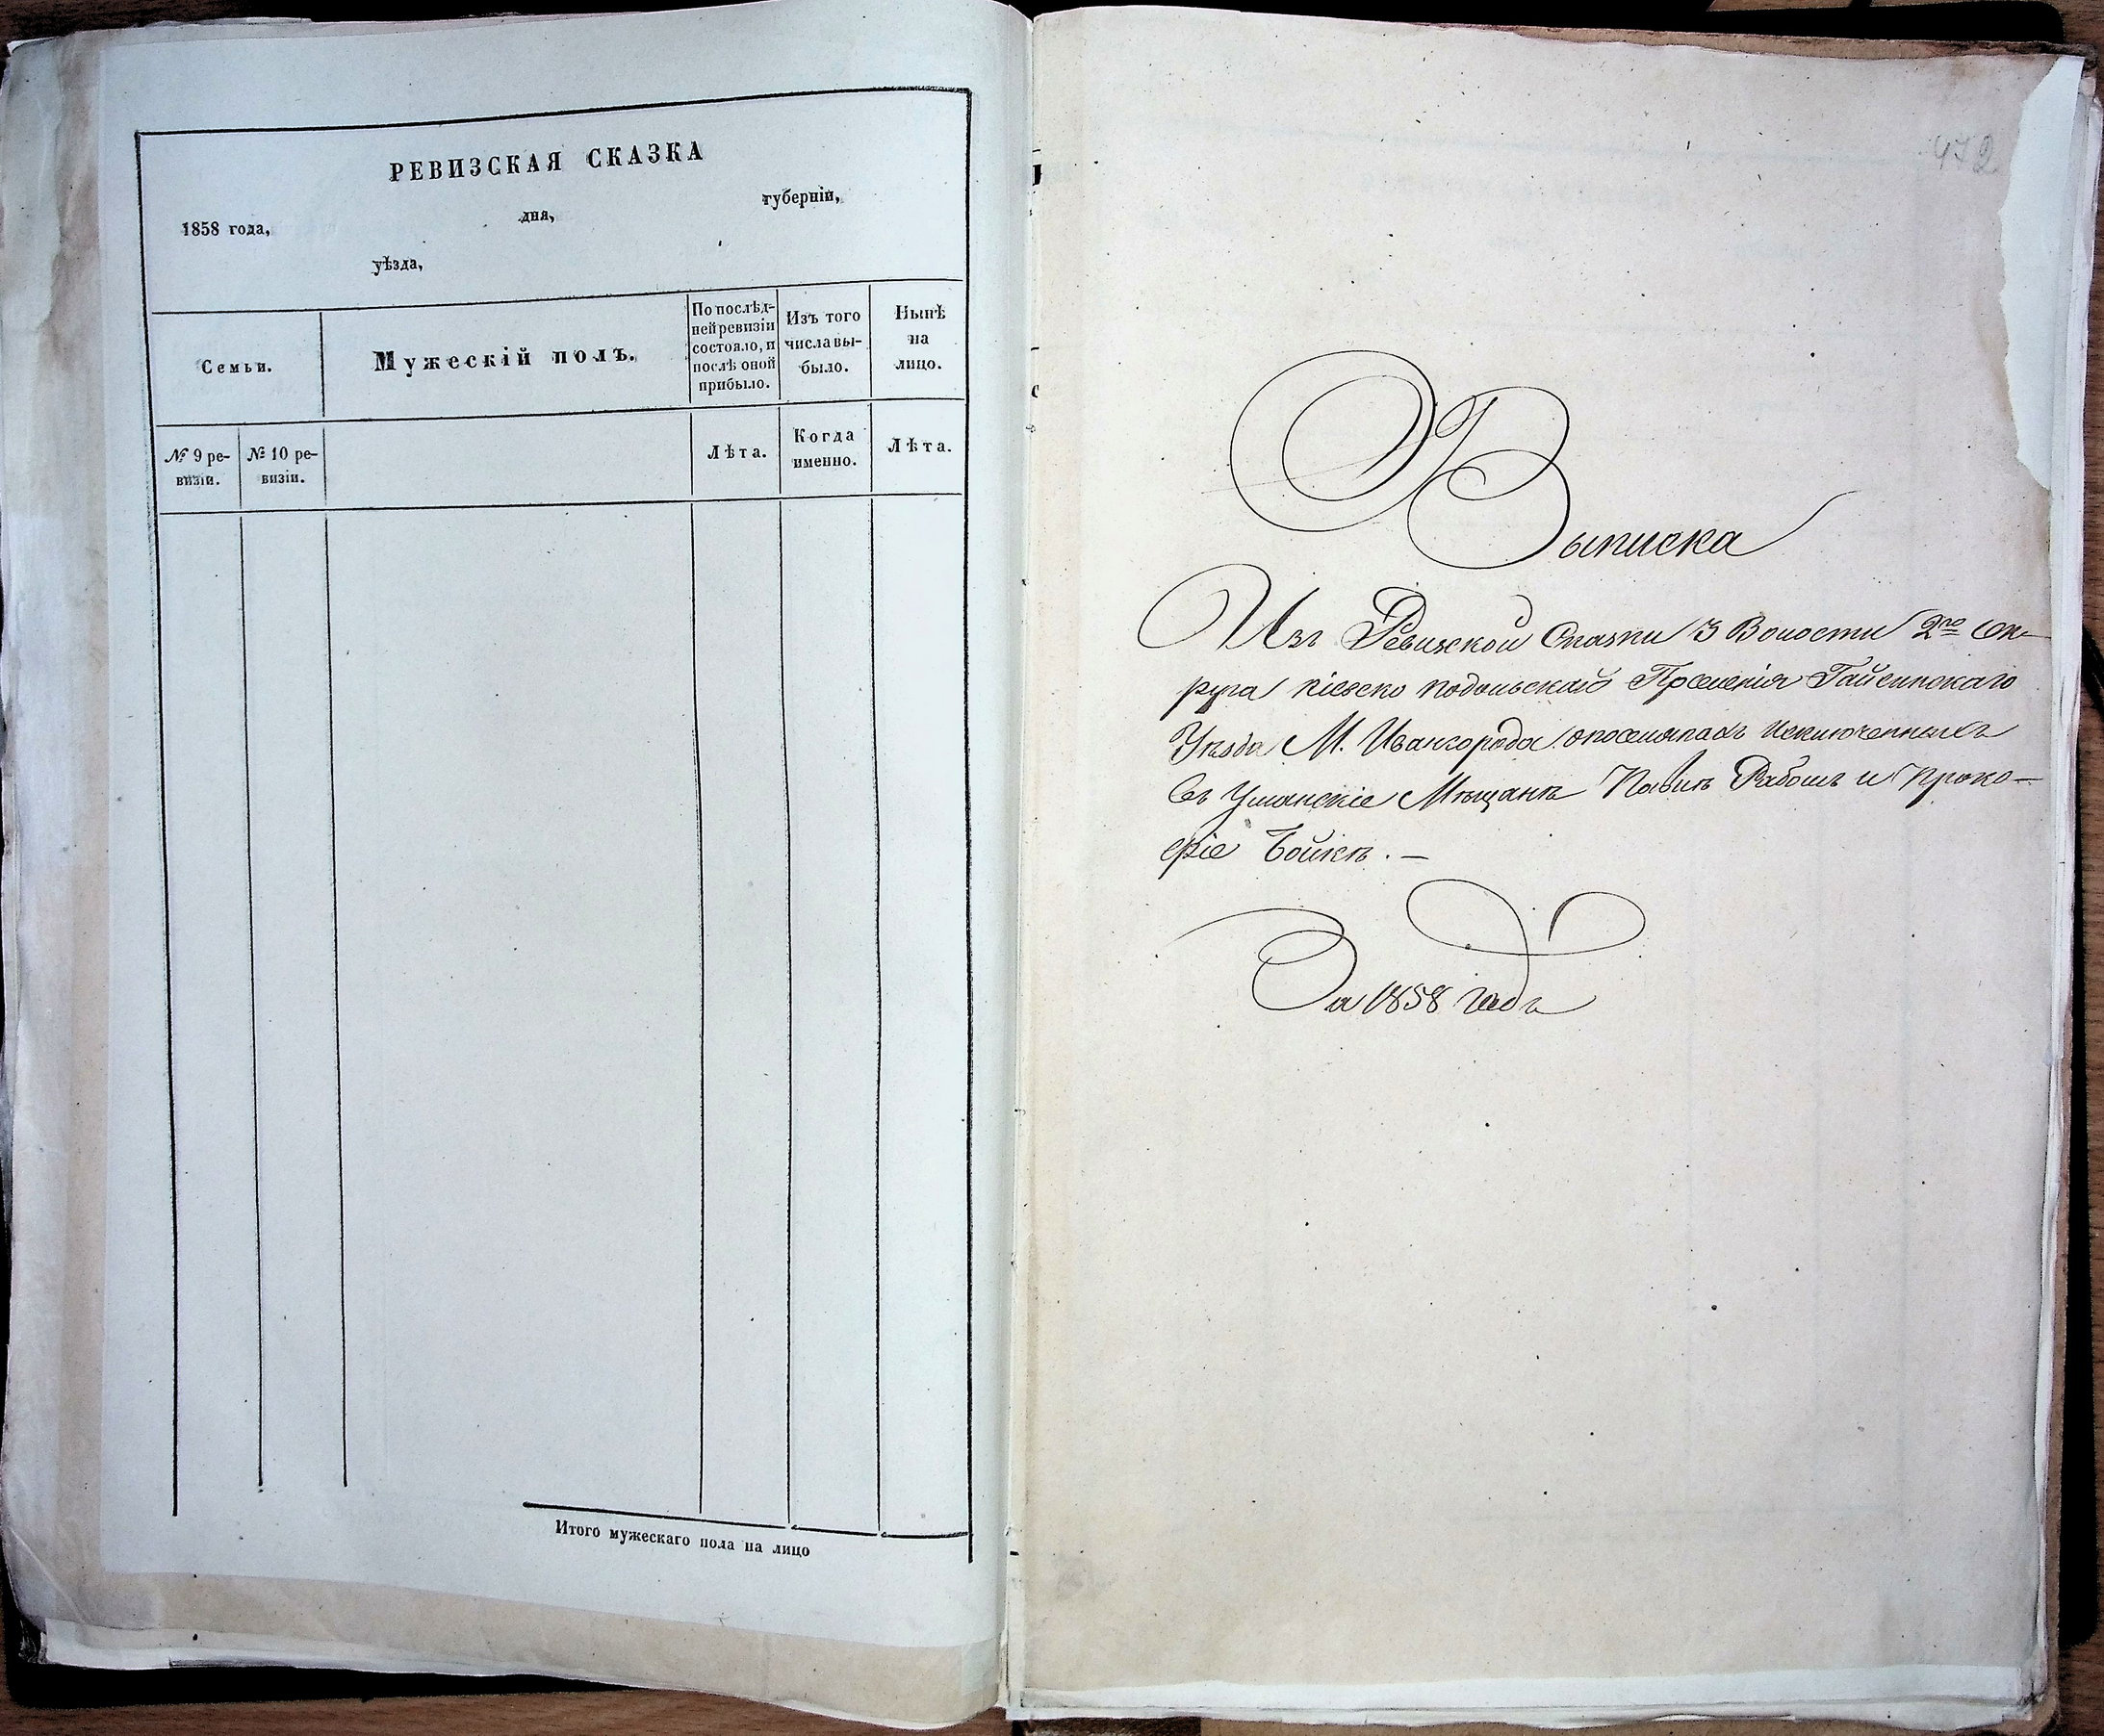 РЕВИЗСКАЯ СКАЗКА
1858 года, дня, губерніи,
уѣзда,
Семьи.
Мужескій полъ.
По послѣд-
ней ревизіи
состояло, и
послѣ оной
прибыло.
Изъ того
числа вы-
было.
Нынѣ
на
лицо.
№ 9 ре-
визіи.
№ 10 ре-
визіи.
Лѣта.
Когда
именно.
Лѣта.
Итого мужескаго пола на лицо
472
Выписка
Изъ Ревизской Сказки 3 Волости 2го Ок-
руга Кіевско Подольскаго Поселенія Гайсинскаго
Уѣзда М. Ивангорода о поселянахъ исключенныхъ
въ Уманскіе Мѣщане и Проко-
фіе Бойкѣ. —
За 1858 годъ